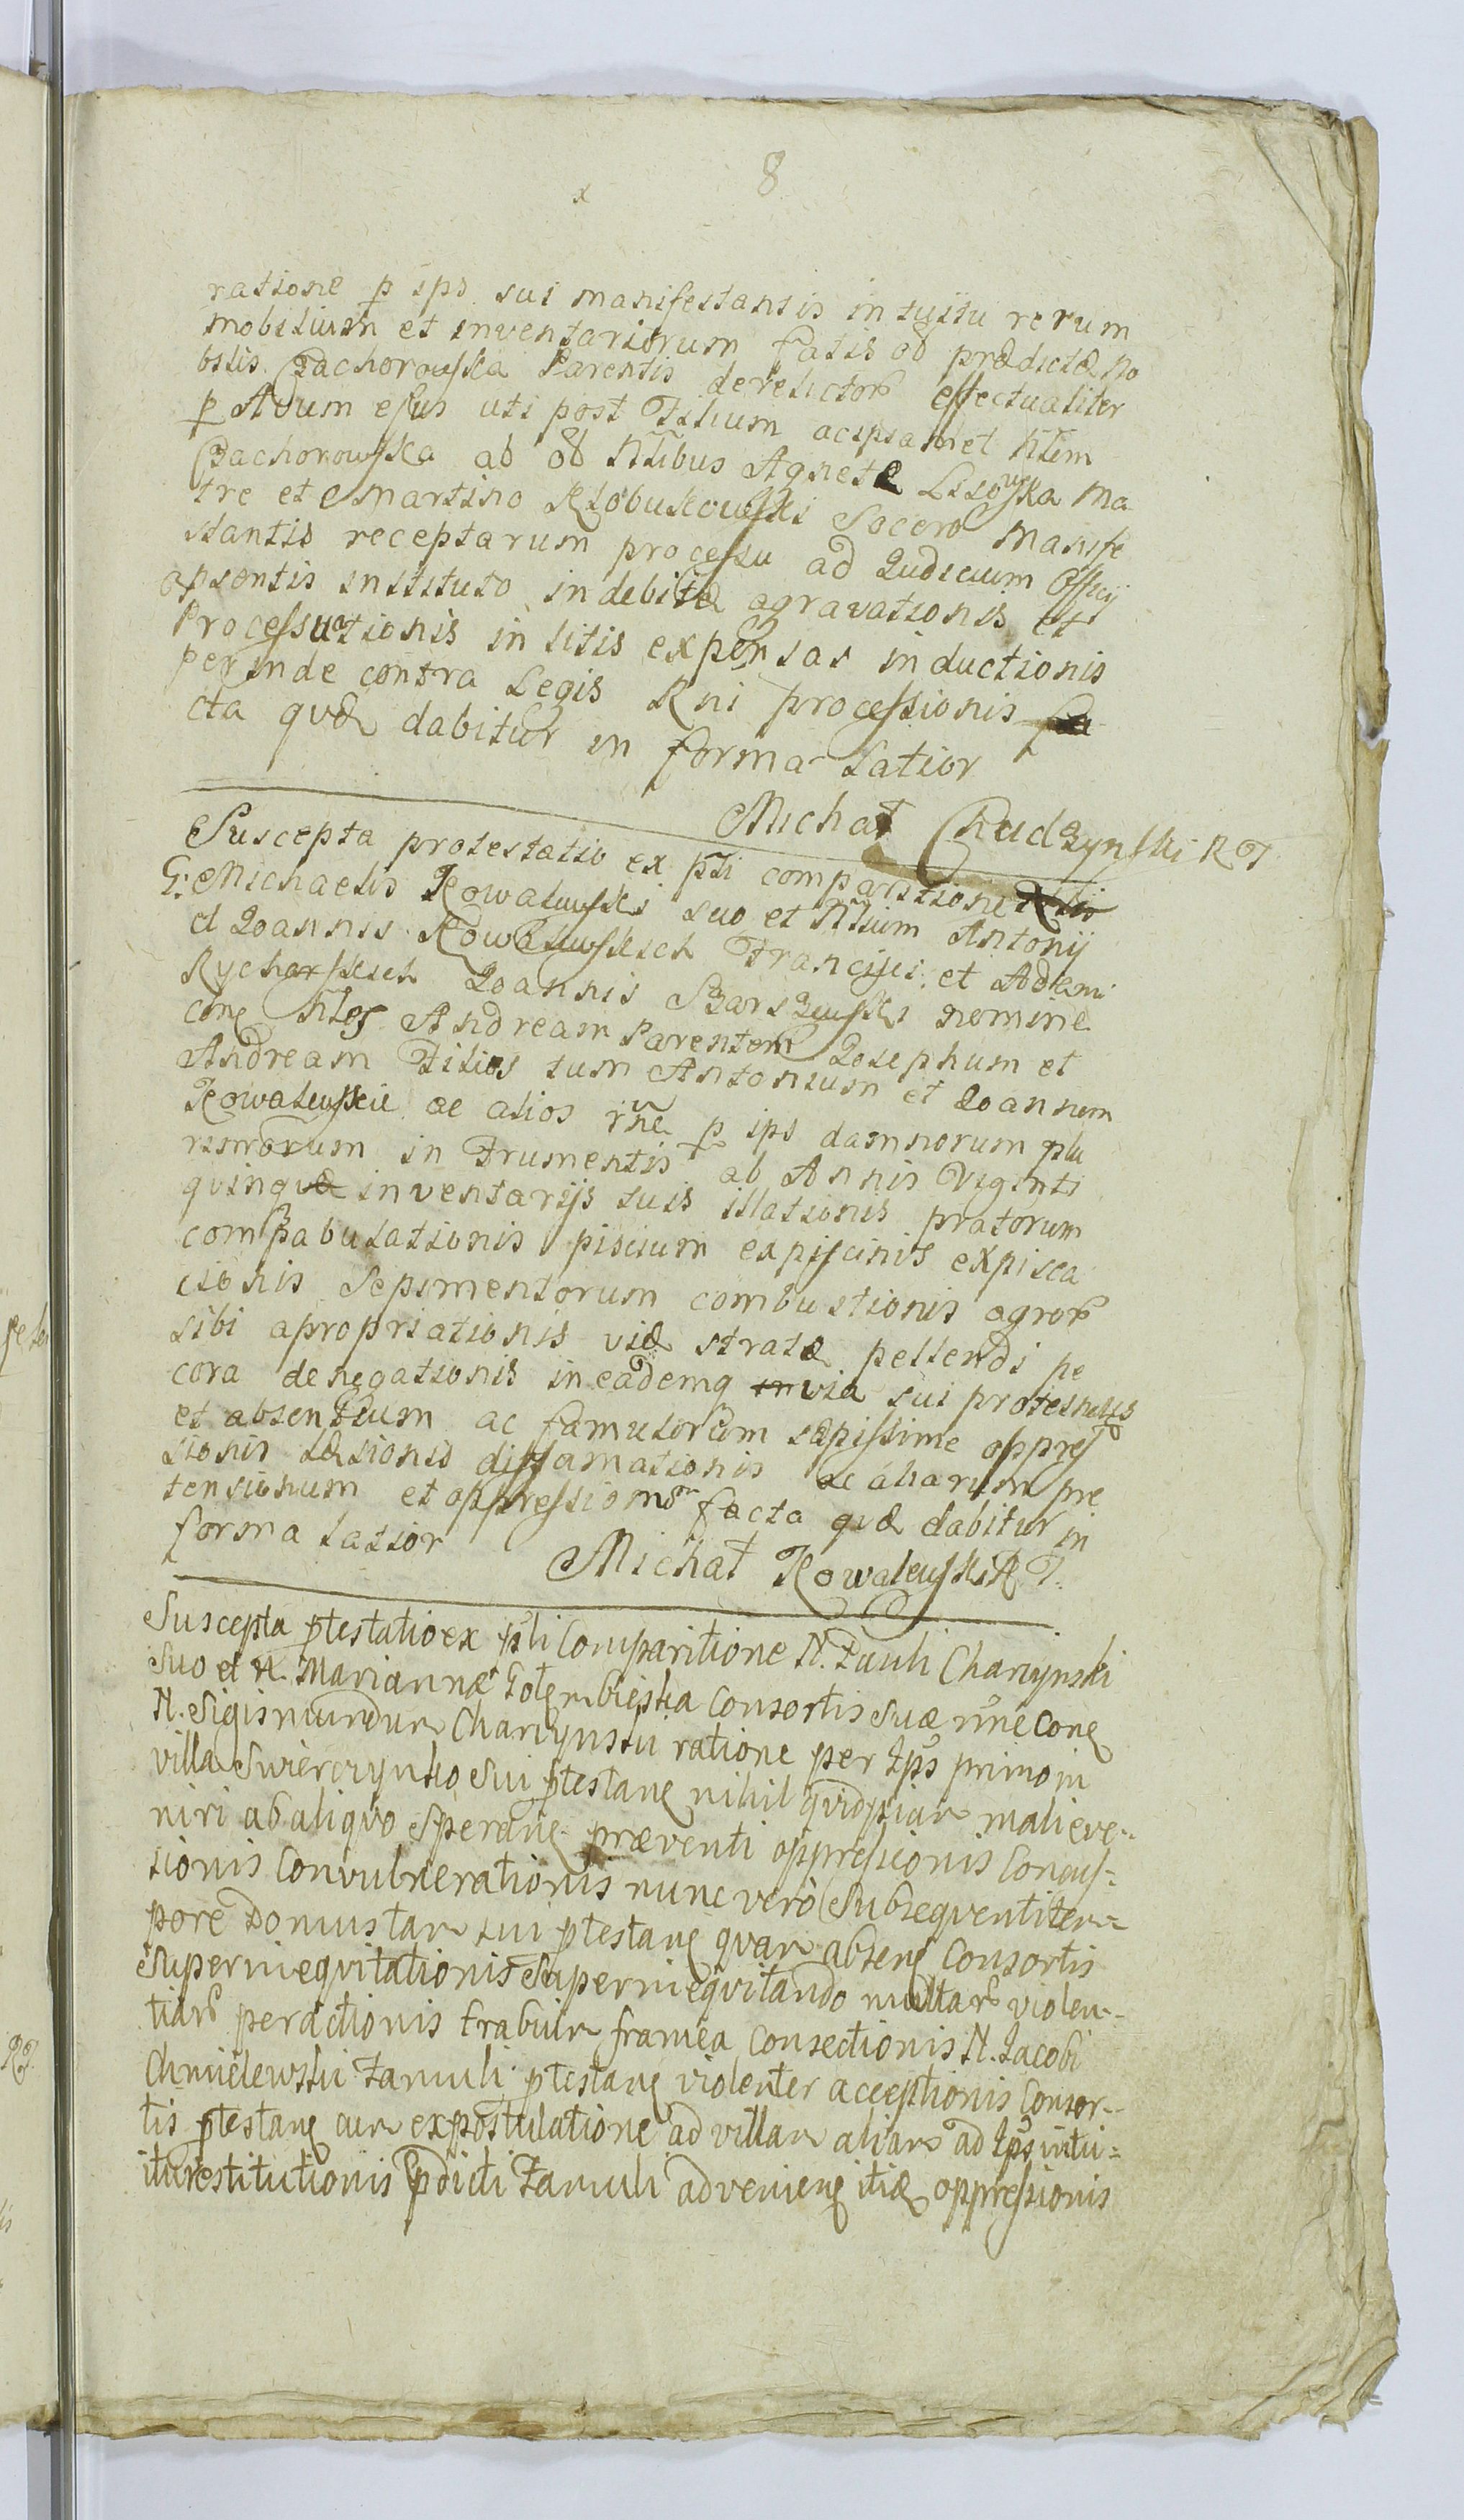 8
x
ratione p ips sui manifestantis intuitu rerum
mobilium et inventariorum fatis ob prædictæ No
bilis Bachorowska Parentis derelictor effectualiter
p Avum ejus uti post Filium ac ipsamet Nlem
Bachorowska ab ob Nlibus Agnete Lisowska Ma
tre et Martino Kłobukowski Socero Manife
stantis receptarum processu ad Judicium Officij
apsentis instituto indebitæ agravationis et
Processuationis in litis expensas inductionis
perinde contra Legis Rni processionis fa
cta quæ dabitur in forma Latior
Michał Chudzynski R T
Suscepta protestatio ex pli comparitione
G: Michaelis Kowalewski suo et Nlium Antonij
et Joannis Kowalewskich Francisci et Adami
Rycharskich Joannis Barszewski nomine
con Nles Andream Parentem Josephum et
Andream Filios tum Antonium et Joannem
Kowalewskie ac alios rne p ips damnorum plu
rimorum in Frumentis ab Annis Viginti
quinque inventarijs suis illationis pratorum
compabulationis piscium ex piscinis expisca
tionis sepimentorum combustionis agror
sibi apropriationis viæ stratæ pellendi pe
cora denegationis in eademq via sui protesnetis
et absentium ac famulorum sæpissime oppres
sionis læsionis diffamationis ac aliarum pre
tensionum et oppressionum facta quæ dabitur in
forma latior
Michał Kowalewski R T.
Suscepta ptestatio ex pli Comparitione N. Pauli Charzynski
suo et N. Mariannæ Gołembieska Consortis suæ rne Con
N. Sigismundum Charzynski ratione per Ips primo in
villa Swierczynko sui ptestan nihil quidpiam mali eve-
niri ab aliquo speran præventi oppressionis Concus-
sionis Convulnerationis nunc verò Subsequenti tem-
pore Domus tam sui ptestan quam absen Consortis
superinequitationis superinequitando multar violen-
tiar peractionis trabum framea Consectionis N. Jacobi
Chmielewski Famuli ptestan violenter acceptionis Consor-
tis ptestan cum expostulatione ad villam aliam ad Ips intui-
itu restitutionis pdicti Famuli advenien itiæ oppressionis